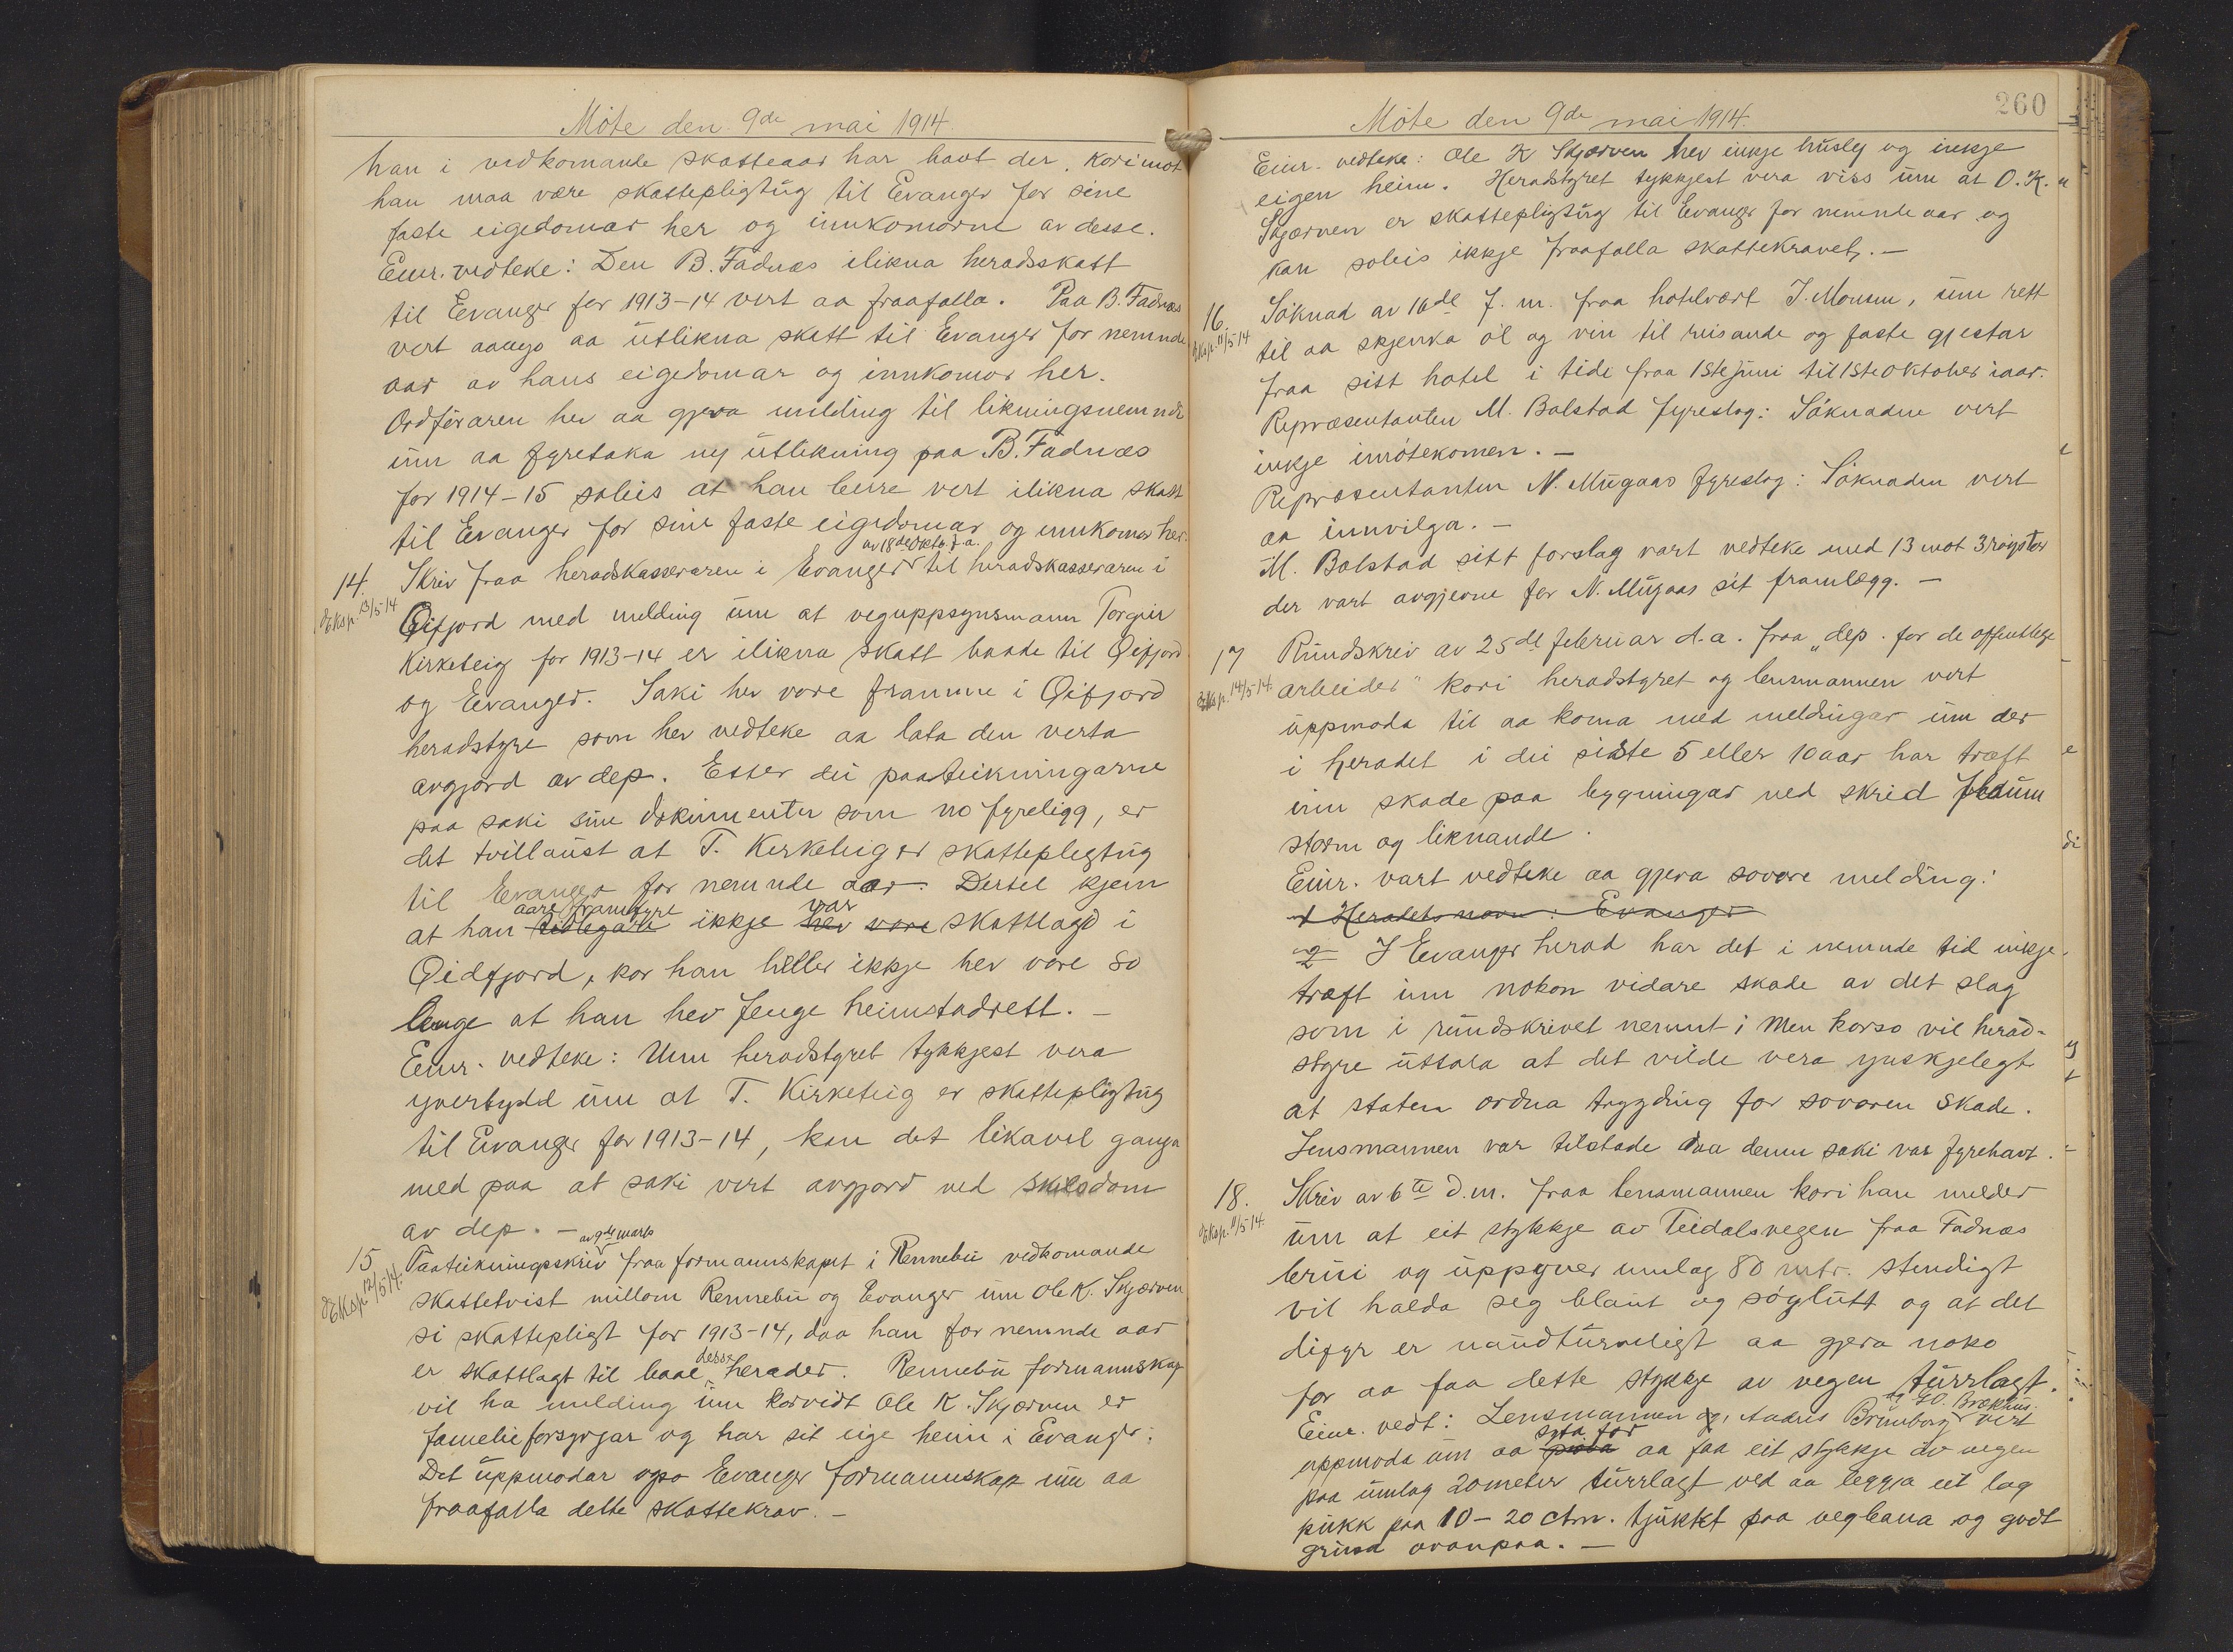 Møte den 9de mai 1914
han i vedkomande skatteaar har havt der, korimot
han maa være skattepligtug til Evanger for sine
faste eigedomar her og innkomorne av desse.
Einr. vedteke: Den B. Fadnæs ilikna heradsskatt
til Evanger for 1913-14 vert aa fraafalla. Paa B. Fadnæs
vert aa utlikna skatt til Evanger for nemnde
aar av hans eigedomar og innkomor her.
Ordføraren hev aa gjera melding til likningsnemndi
um aa fyretaka ny utlikning paa B. Fadnæs
for 1914-15 soleis at han berre vert ilikna skatt
til Evanger for sine faste eigedomar og innkomor her.
av 18de oktb. f.a.
14. Skriv fraa heradskasseraren i Evanger til heradskasseraren i
Eksp. 13/5-14
Eifjord med melding um at veguppsynsmann Torgeir
Kirketeig for 1913-14 er ilikna skatt baade til Eifjord
og Evanger. Saki hev vore framme i Eifjord
heradstyre som hev vedteke aa lata den verta
avgjord av dep. Etter dei paateikningarne
paa saki sine dokumenter som no fyreligg, er
det tvillaust at T. Kirketeig er skattepligtug
til Evanger for nemnde aar. Dertil kjem
aaret framfyre var
at han tidlegare ikkje hev vore skattlagd i
Eidfjord, kor han heller ikkje hev vore so
lenge at han hev fenge heimstadrett. -
Einr. vedteke: Um heradstyret tykkjest vera
yvertydd um at T. Kirketeig er skattepligtug
til Evanger for 1913-14, kan det likavel ganga
med paa at saki vert avgjord ved skilsdom
av dep. -
av 9de marts
15 Paateikningsskriv fraa formannskapet i Rennebu vedkomande
Eksp. 12/5 14.
skattetvist millom Rennebu og Evanger um Ole K. Skjerven
si skattepligt for 1913-14, daa han for nemnde aar
er skattlagt til baae desse herader. Rennebu formannskap
vil ha melding um korvidt Ole K. Skjerven er
familieforsyrgjar og har sit eige heim i Evanger.
Det uppmodar ogso Evanger formannskap um aa
fraafalla dette skattekrav. -
260
Møte den 9de mai 1914.
Einr. vedteke: Ole K Skjerven hev inkje husly og inkje
eigen heim. Heradstyret tykkjest vera viss um at O. K.
Skjerven er skattepligtug til Evanger for nemnde aar og
kan soleis ikkje fraafalla skattekravet. -
16. Søknad av 16de f. m. fraa hotelvært J. Monsen, um rett
Eksp. 11/5-14
til aa skjenka øl og vin til reisande og faste gjestar
fraa sitt hotel i tidi fraa 1ste juni til 1ste oktober iaar.
Repræsentanten M. Bolstad fyreslog: Søknaden vert
inkje imøtekomen. -
Repræsentanten N. Mugaas fyreslog: Søknaden vert
aa innvilga. -
M. Bolstad sitt forslag vart vedteke med 13 mot 3 røyster
der vart avgjevne for N. Mugaas sit framlegg. -
17 Rundskriv av 25de februar d.a. fraa "dep. for de offentlege
Eksp. 14/5-14.
arbeider" kori heradstyret og lensmannen vert
uppmoda til aa koma med meldingar um der
i heradet i dei siste 5 eller 10 aar har træft
inn skade paa bygningar ved skrid flaum
storm og liknande.
Einr. vart vedteke aa gjera sovore melding:
1 Heradets navn: Evanger
2 I Evanger herad har det i nemnde tid inkje
træft inn nokon vidare skade av det slag
som i rundskrivet nemnt; Men korso vil herad-
styre uttala at det vilde vera ynskjelegt
at staten ordna trygding for sovoren skade.
Lensmannen var tilstade daa denne saki var fyrehavt.
18. Skriv av 6te d.m. fraa lensmannen kori han melder
Eksp. 11/5-14.
um at eit stykkje av Teidalsvegen fraa Fadnæs
brui og uppyver umlag 80 mtr. stendigt
vil halda seg blaut og søylutt og at det
difyr er naudturveligt aa gjera noko
for aa faa dette stykkje av vegen turrlagt.
og G.O. Brækhus.
Einr. vedt: Lensmannen og, Andres Brunborg vert
syta for
uppmoda um aa aa faa eit stykkje av vegen
paa umlag 20 meter turrlagt ved aa leggja eit lag
pukk paa 10-20 ctm. tjukkt paa vegbana og godt
grusa ovanpaa. -